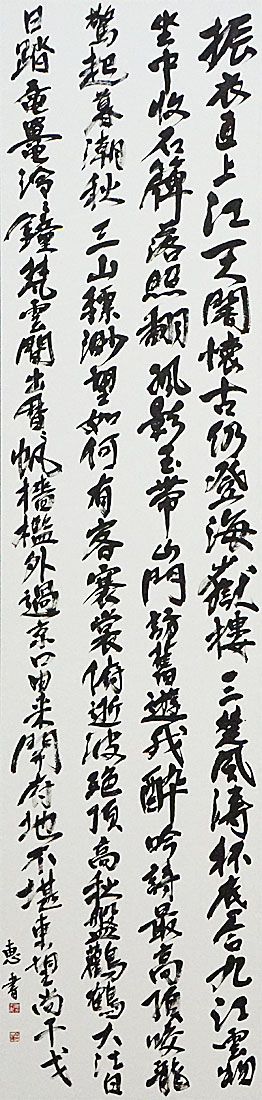 振衣直上江天閣懷古仍登海嶽樓三楚風濤杯底合九江雲物
坐中收石簰落照翻孤影玉帶山門訪舊遊我醉吟詩最高頂蛟龍
驚起暮潮秋三山縹渺望如何有客褰裳俯逝波絕頂高秋盤鸛鶴大江白
日踏黿鼉泠〻鐘梵雲間出歷〻帆檣檻外過京口由来開府地不堪東望尚干戈
惠書